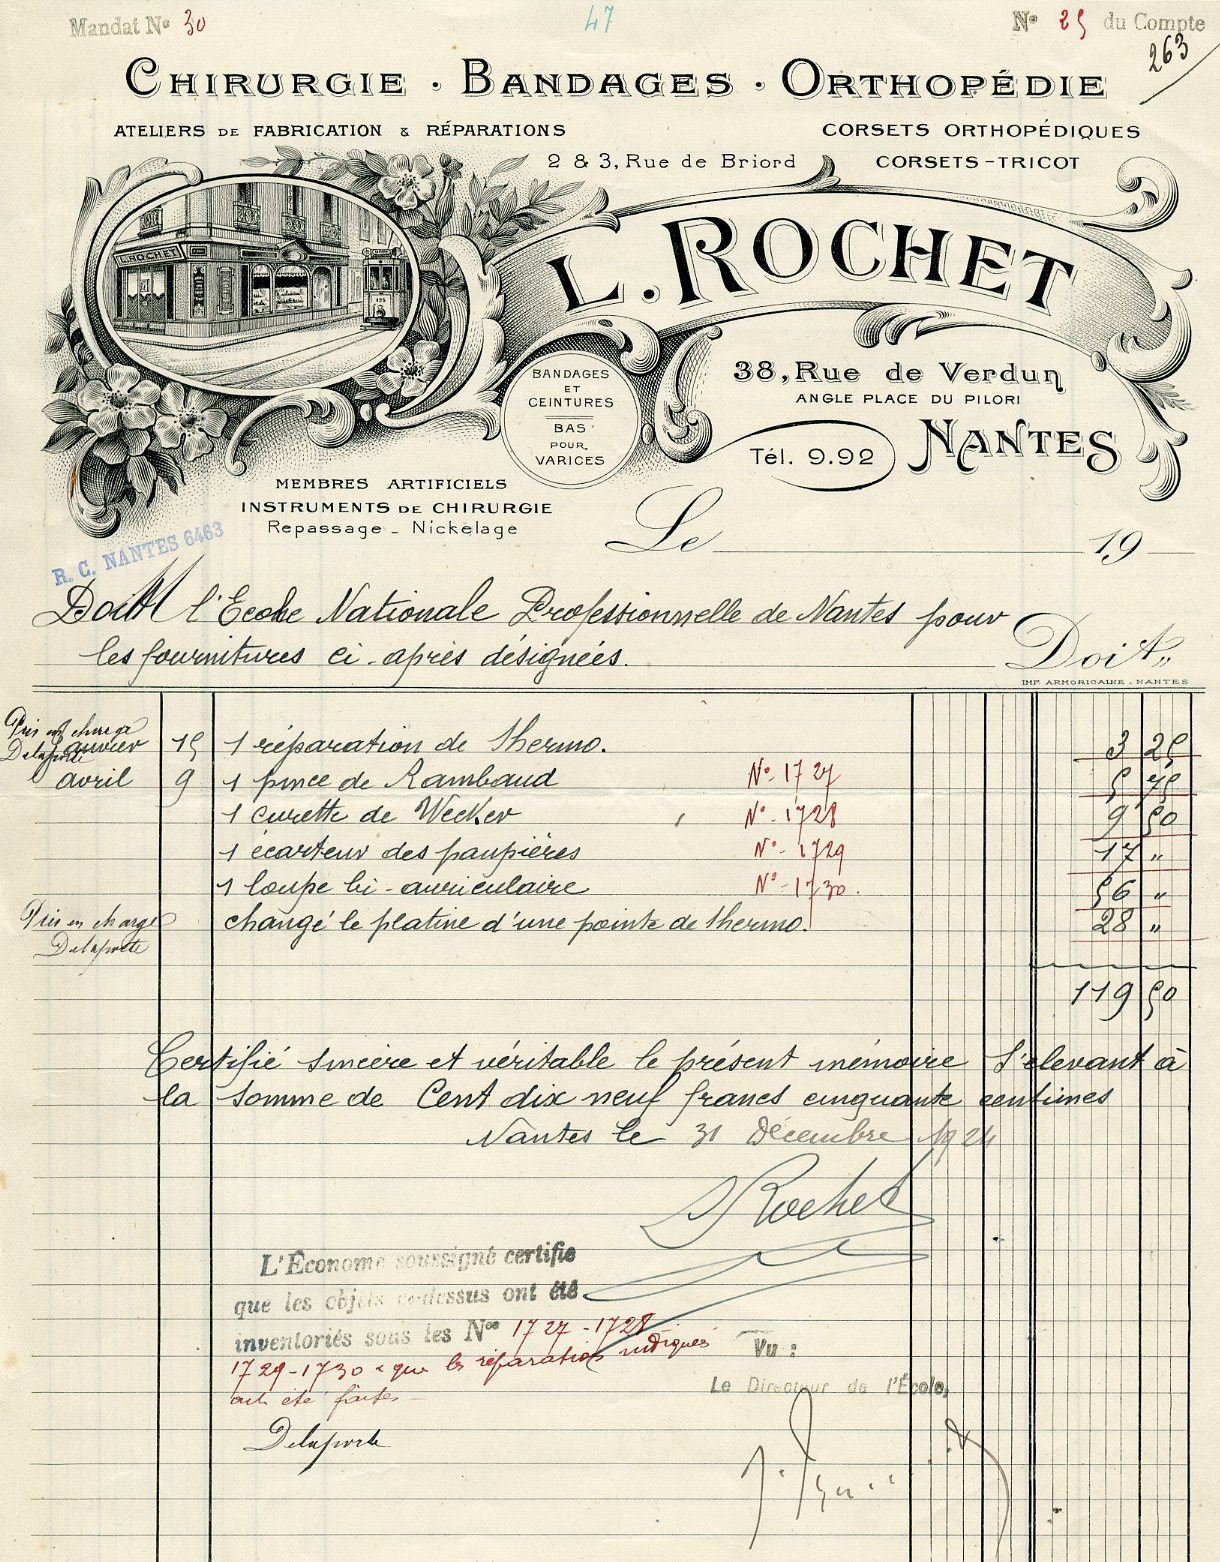 Mandat No 30
47
No 25 du Compte
263
CHIRURGIE · BANDAGES · ORTHOPÉDIE
ATELIERS DE FABRICATION & RÉPARATIONS
CORSETS ORTHOPÉDIQUES
2 & 3, Rue de Briord
CORSETS-TRICOT
L. ROCHET
L. ROCHET
195
38, Rue de Verdun
ANGLE PLACE DU PILORI
NANTES
Tél. 9.92
BANDAGES
ET
CEINTURES
BAS
POUR
VARICES
MEMBRES ARTIFICIELS
INSTRUMENTS DE CHIRURGIE
Repassage - Nickelage
R. C. NANTES 6463
Le 19
Doit M l'Ecole Nationale Professionnelle de Nantes pour
les fournitures ci-après désignées.
Doit
IMP. ARMORICAINE - NANTES
Pris en charge
Delaporte
Janvier 15 1 réparation de thermo. 3 25
avril 9 1 pince de Rambaud No 1727 5 75
1 curette de Wecker No 1728 9 50
1 écarteur des paupières No 1729 17 "
1 loupe bi-auriculaire No 1730. 56 "
Pris en charge
Delaporte
changé le platine d'une pointe de thermo. 28 "
119 50
Certifié sincère et véritable le présent mémoire s'elevant à
la somme de Cent dix neuf francs cinquante centimes
Nantes le 31 Décembre 1924
L Rochet
L'Économe soussigné certifie
que les objets ci-dessus ont été
inventoriés sous les Nos 1727-1728
1729-1730 & que les réparations indiqués
ont été faites
Delaporte
Vu :
Le Directeur de l'École,